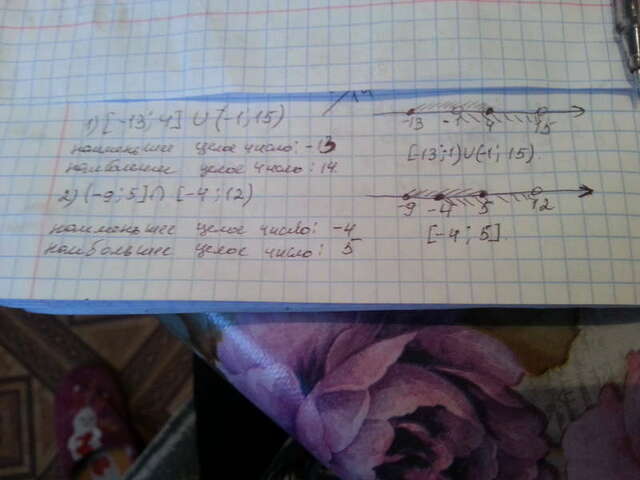 1) [-13; 4] ∪ (-1; 15)
наименьшее целое число: -13
наибольшее целое число: 14
-13 -1 4 15
[-13; 1) ∪ (-1; 15)
2) (-9; 5] ∩ [-4; 12)
наименьшее целое число: -4
наибольшее целое число: 5
-9 -4 5 12
[-4; 5].